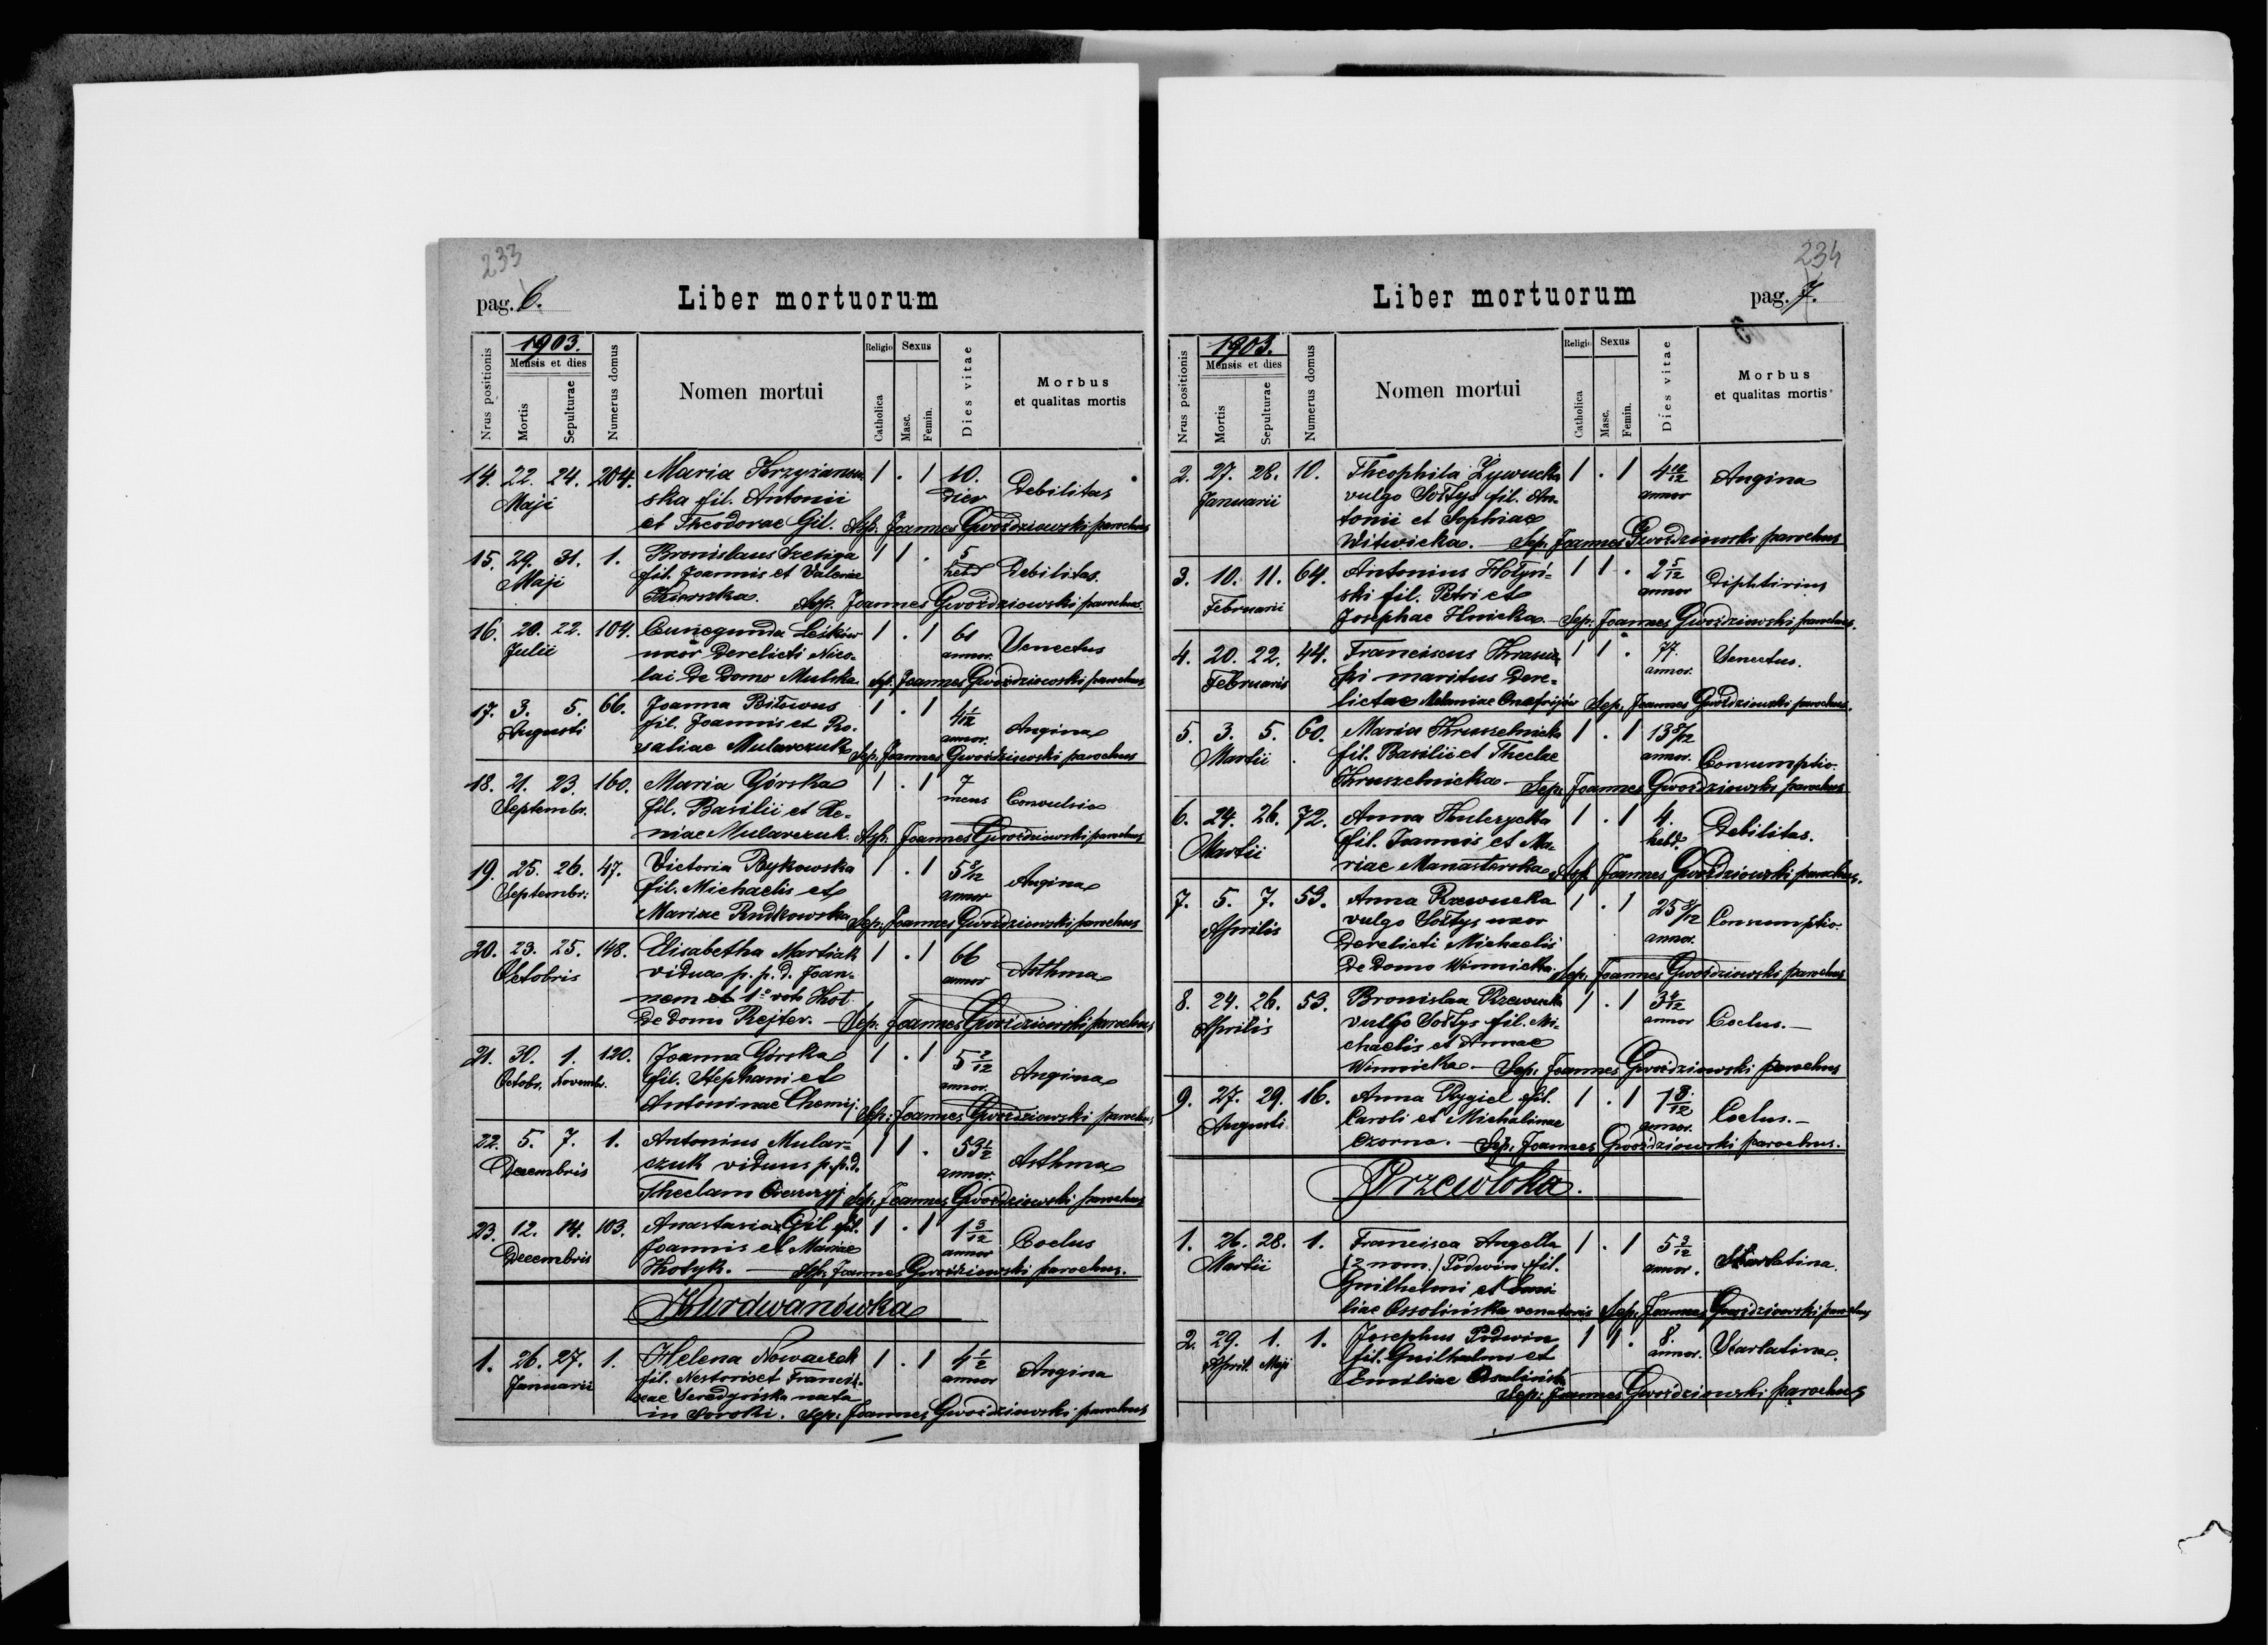 233
pag. 6.
Liber mortuorum
Nrus positionis
1903.
Mensis et dies
Mortis
Sepulturae
Numerus domus
Nomen mortui
Religio
Catholica
Sexus
Masc.
Femin.
Dies vitae
Morbus
et qualitas mortis
14. 22. 24. 204. Maria Krzyżanow 1 . 1 10. Debilitas
Maji ska fil. Antonii dier
et Theodorae Gil. Asp. Joannes Gwoździowski parochus
15. 29. 31. 1. Bronislaus Szeliga 1 1 . 5 Debilitas.
Maji fil. Joannis et Valeriae hebd
Asp. Joannes Gwoździowski parochus.
16. 20. 22. 104. Cunegunda Leśków 1 . 1 61 Senectus
Julii uxor derelicti Nico- annor.
lai de domo Mulska. Sep. Joannes Gwoździowski parochus
17. 3. 5. 66. Joanna Bitowus 1 . 1 4 1/12 Angina
Augusti fil. Joannis et Ro- annor.
saliae Mularczuk Sep. Joannes Gwoździowski parochus
18. 21. 23. 160. Maria Górska 1 . 1 7 Convulsia
Septembr. fil. Basilii et Xe- mens
niae Mularczuk. Asp. Joannes Gwoździowski parochus
19. 25. 26. 47. Victoria Bykowska 1 . 1 Angina
Septembr: fil. Michaelis et annor
Mariae Rudkowska Sep. Joannes Gwoździowski parochus
20. 23. 25. 148. Elisabetha Martiak 1 . 1 66 Asthma
Octobris vidua p. p. d. Joan- annor
nem et 1o voto Kot
de domo Rejter. — Sep. Joannes Gwoździowski parochus
21. 30. 1. 120. Joanna Górska 1 . 1 5 2/12 Angina
Octobr. Novembr. fil. Stephani et annor.
Antoninae Chomij. Sep: Joannes Gwoździowski parochus
22. 5. 7. 1. Antonius Mular- 1 1 . 53 1/2 Asthma
Decembris czuk viduus p. p. d. annor.
Theclam Sep. Joannes Gwoździowski parochus
23. 12. 14. 103. Anastasia Gil fil. 1 . 1 1 3/12 Coclus
Decembris Joannis et Mariae annor
Kotyk. — Sep. Joannes Gwoździowski parochus.
Kurdwanówka
1. 26. 27. 1. Helena Nowaczek 1 . 1 4 1/2 Angina
Januarii fil. Nestoris et Francis- annor
cae Seredyńska nata
in Soroki. Sep: Joannes Gwoździowski parochus
234
Liber mortuorum
pag. 7.
Nrus positionis
1903.
Mensis et dies
Mortis
Sepulturae
Numerus domus
Nomen mortui
Religio
Catholica
Sexus
Masc.
Femin.
Dies vitae
Morbus
et qualitas mortis
2. 27. 28. 10. Theophila Żywucka 1 . 1 4 10/12 Angina
Januarii vulgo Sołtys fil. An- annor
tonii et Sophiae
Witwicka. — Sep. Joannes Gwoździowski parochus
3. 10. 11. 64. Antonius Hołyń- 1 1 . 2 5/12 Diphtirius
Februarii ski fil. Petri et annor
Josephae Hnicka — Sep: Joannes Gwoździowski parochus.
4. 20. 22. 44. Franciscus 1 1 . 77. Senectus.
Februaris ski maritus dere- annor.
lictae Melaniae Onofrijów Sep. Joannes Gwoździowski parochus.
5. 3. 5. 60. Maria Kruszelnicka 1 . 1 Consumptio.
Martii fil. Basilii et Theclae annor.
Kruszelnicka — Sep. Joannes Gwoździowski parochus
6. 24. 26. 72. Anna Kulczycka 1 . 1 4. Debilitas.
Martii fil. Joannis et Ma- hebd.
riae Manasterska Asp. Joannes Gwoździowski parochus.
7. 5. 7. 53. Anna Rzewucka 1 . 1 Consumptio.
Aprilis vulgo Sołtys uxor annor.
derelicti Michaelis
de domo Winnicka. Sep. Joannes Gwoździowski parochus
8. 24. 26. 53. Bronislaa Rzewucka 1 . 1 Coclus. —
Aprilis vulgo Sołtys fil. Mi- annor
chaelis et Annae
Winnicka — Sep: Joannes Gwoździowski parochus
9. 27. 29. 16. Anna Rygiel fil. 1 . 1 1 8/12 Coclus. —
Augusti Caroli et Michalinae annor.
Czorna. — Sep. Joannes Gwoździowski parochus.
Przewłoka.
1. 26. 28. 1. Francisca Angella 1 . 1 5 3/12 Skarlatina.
Martii (2 nom.) Podwin fil. annor.
Guilhelmi et Emi-
liae Ossolińska venatoris Sep. Joannes Gwoździowski parochus
2. 29. 1. 1. Josephus Podwin 1 1 . 8. Skarlatina.
April. Maji fil. Guilhelmi et annor.
Emiliae
Sep: Joannes Gwoździowski parochus